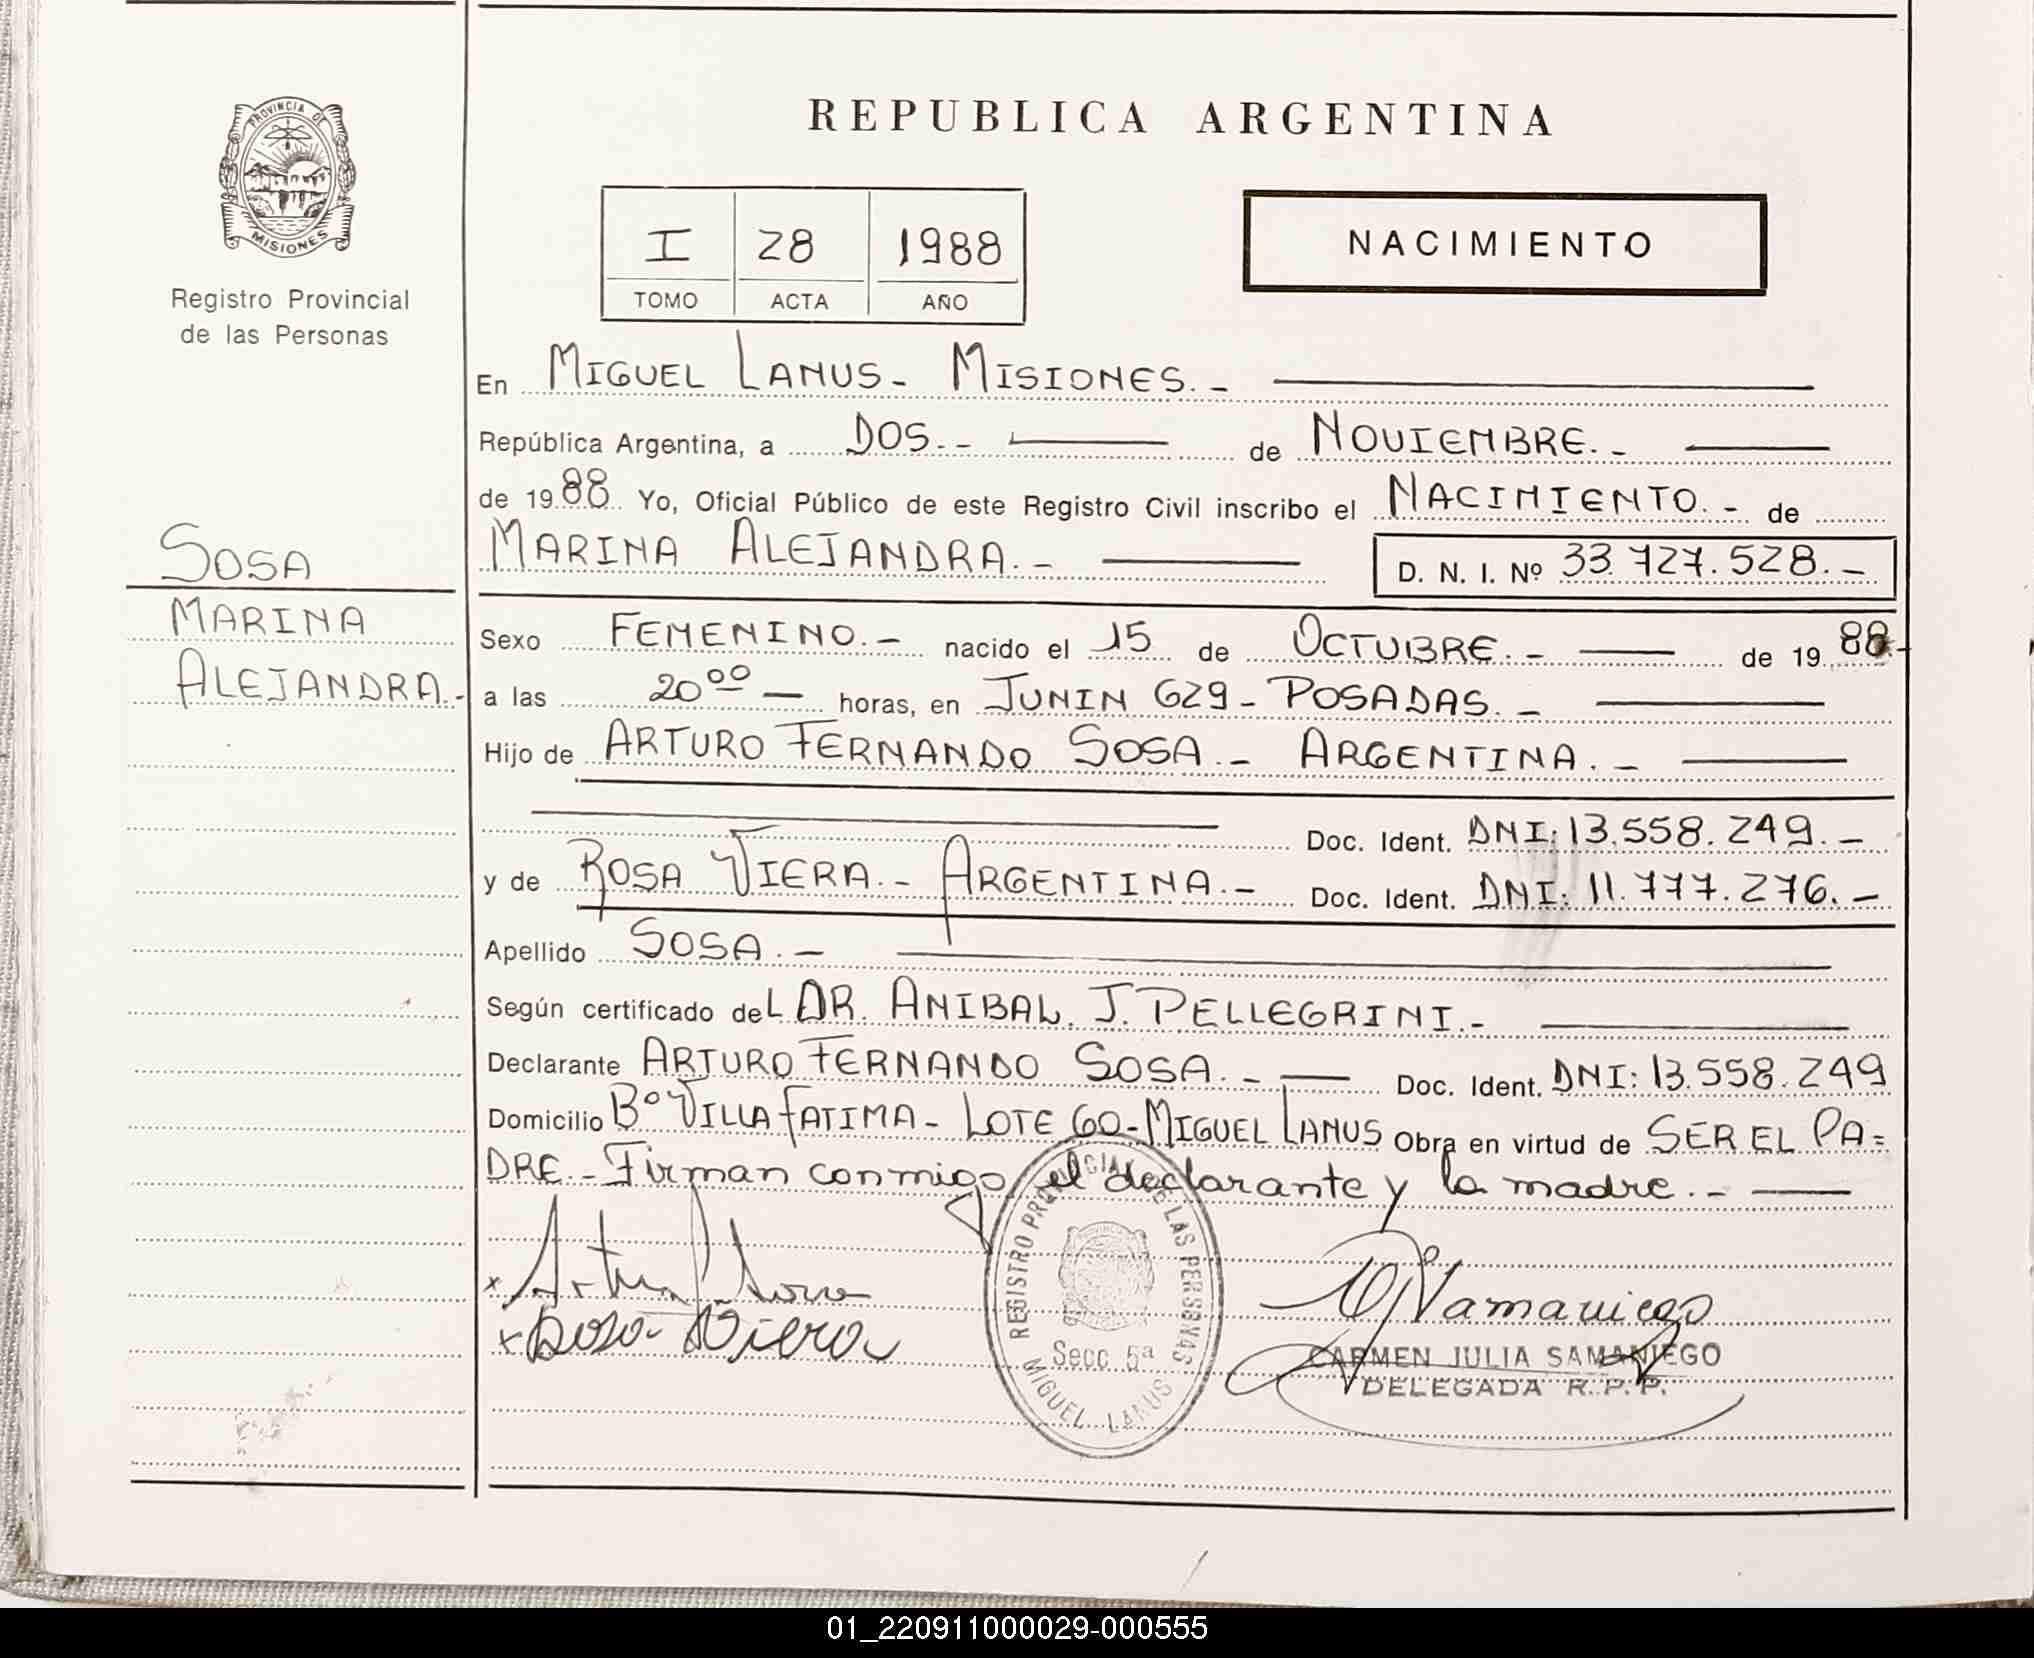 PROVINCIA DE
MISIONES
Registro Provincial
de las Personas
SOSA
MARINA
ALEJANDRA.-
REPUBLICA ARGENTINA
I 28 1988
TOMO ACTA AÑO
NACIMIENTO
En MIGUEL LANUS - MISIONES. -
República Argentina, a DOS. - de NOVIEMBRE. -
de 1988 Yo, Oficial Público de este Registro Civil inscribo el NACIMIENTO. - de
MARINA ALEJANDRA. - D. N. I. Nº 33.727.528. -
Sexo FEMENINO. - nacido el 15 de OCTUBRE. - de 1988.-
a las 20ºº - horas, en JUNIN 629 - POSADAS. -
Hijo de ARTURO FERNANDO SOSA. - ARGENTINA. -
Doc. Ident. DNI: 13.558.249. -
y de ROSA VIERA. - ARGENTINA. - Doc. Ident. DNI: 11.777.276. -
Apellido SOSA. -
Según certificado del DR. ANIBAL. J. PELLEGRINI. -
Declarante ARTURO FERNANDO SOSA. - Doc. Ident. DNI: 13.558.249
Domicilio Bº VILLA FATIMA - LOTE 60 - MIGUEL LANUS Obra en virtud de SER EL PA=
DRE. - Firman conmigo, el declarante y la madre. -
x Arturo F Sosa
x Rosa Viera
REGISTRO PROVINCIAL DE LAS PERSONAS
Secc. 5ª
MIGUEL LANUS
CARMEN JULIA SAMANIEGO
DELEGADA R. P. P.
01_220911000029-000555